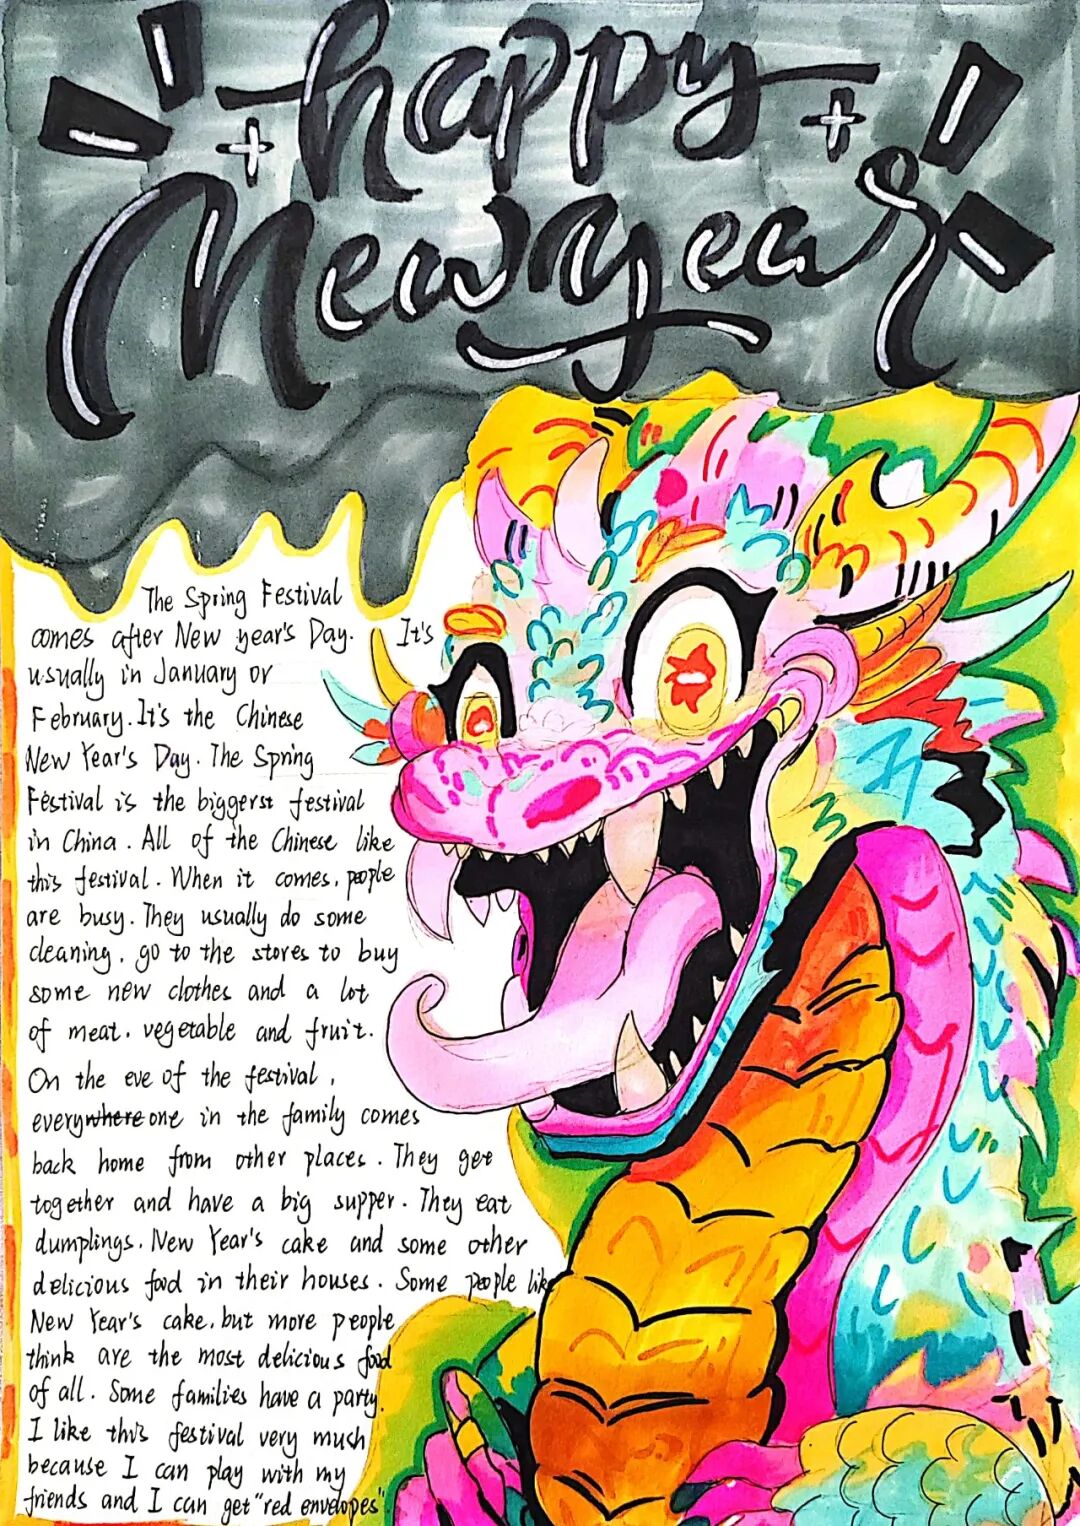 happy
New year
The Spring Festival
comes after New year's Day. It's
usually in January or
February. It's the Chinese
New Year's Day. The Spring
Festival is the biggerst festival
in China. All of the Chinese like
this festival. When it comes, people
are busy. They usually do some
cleaning, go to the stores to buy
some new clothes and a lot
of meat, vegetable and fruit.
On the eve of the festival,
everywhere one in the family comes
back home from other places. They get
together and have a big supper. They eat
dumplings, New Year's cake and some other
delicious food in their houses. Some people like
New Year's cake, but more people
think are the most delicious food
of all. Some families have a party.
I like this festival very much
because I can play with my
friends and I can get "red envelopes".